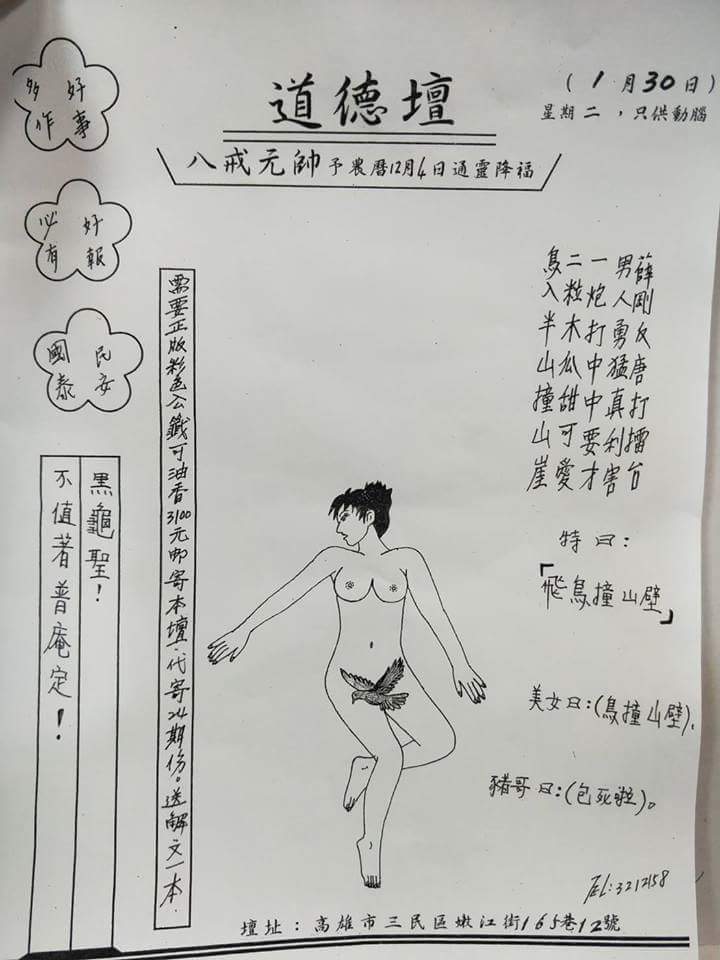 道德壇
(1月30日)
星期二，只供動腦
八戒元帥予農曆12月4日通靈降福
好事
多作
好報
必有
民安
國泰
薛剛反唐打擂台
男人勇猛真利害
一炮打中中要才
二粒木瓜甜可愛
鳥入半山撞山崖
特曰：
「飛鳥撞山壁」
美女曰：(鳥撞山壁)。
豬哥曰：(包死啦)。
需要正版彩色公籤可油香3100元郵寄本壇．代寄24期份。送解文一本．
黑龜聖！
不值著普庵定！
TEL:3212158
壇址：高雄市三民區嫩江街165巷12號